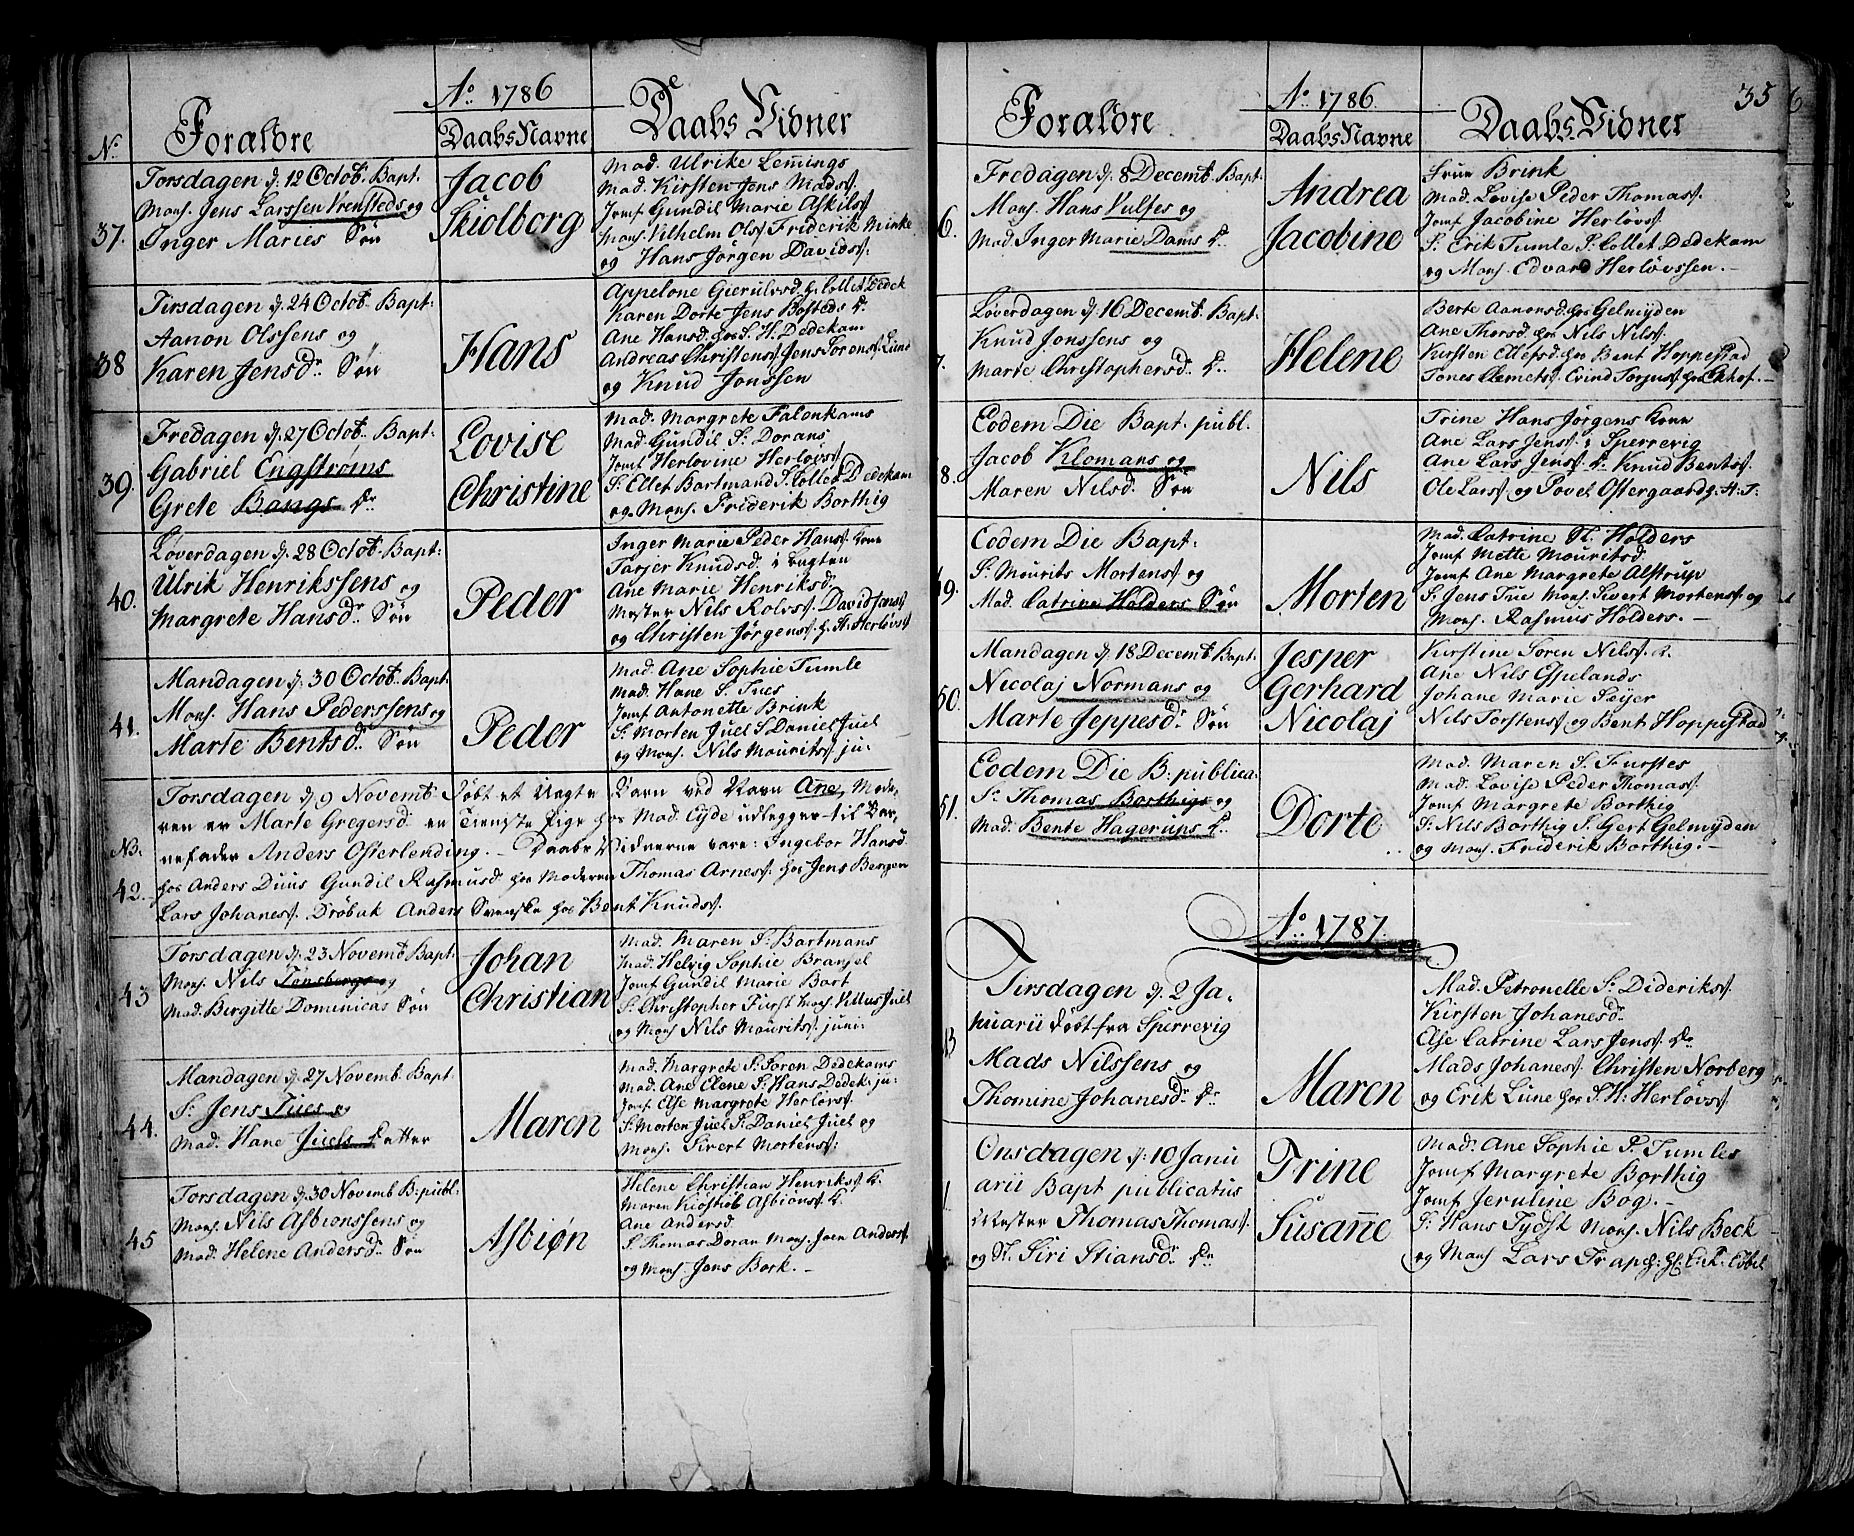 Ao. 1786
No. Forældre
DaabsNavne
Daabs Vidner
37.
Torsdagen d. 12 Octob. Bapt.
Mons. Jens Larssen Vrensteds og
Inger Maries Søn
Jacob
Skiolborg
Mad. Ulrike Lemings
Mad. Kirsten Jens Madsf.
Jomf. Gundil Marie Askilsf.
Mons. Vilhelm Olsf. Friderik Minke
og Hans Jørgen Davidsf.
38
Tirsdagen d. 24 Octob. Bapt.
Aanon Olssens og
Karen Jensdr. Søn
Hans
Appelone Gierulvsd. hs Collet Dedek
Karen Dorte Jens Bosteds Dr.
Ane Hansd. hos S. H. Dedekam
Andreas Christensf. Jens Sorensf. Lund
og Knud Jonssen
39.
Fredagen d. 27 Octob. Bapt.
Gabriel Engstrøms
Grete Bangs Dr.
Lovise
Christine
Mad. Margrete Falenkams
Mad. Gundil Sr. Dorans
Jomf. Herlovine Herløvsf.
Sr. Ellet Bartman S. Collet Dedekam
og Mons. Friderik Borthig
40.
Løverdagen d. 28 Octob. Bapt:
Ulrik Henrikssens og
Margrete Hansdr. Søn
Peder
Inger Marie Peder Hansf. Kone
Tarjer Knudsd. i Bugten
Ane Marie Henriksd.
Mester Nils Rolvsf. David Jensf.
og Christen Jørgensf. h. H. Herløvsf
41.
Mandagen d. 30 Octob. Bapt.
Mons. Hans Pederssens og
Marte Bentsdr. Søn
Peder
Mad. Ane Sophie Tumle
Mad. Hane S. Tues
Jomf. Antonette Brink
Sr. Morten Juel S. Daniel Juel
og Mons. Nils Mouritsf. ju:
NB.
42.
Torsdagen d. 9 Novemb. Døbt et Uægte Barn ved Navn Ane, Mode-
ren er Marte Gregersd. en tieneste Pige hos Mad. Eyde udlegger til Bar-
nefader Anders Osterlending. Daabs Vidnerne vare: Ingebor Hansd.
hos Anders Duus Gundil Rasmusd. hos Moderen Thomas Arnesf. hos Jens Bergen
Lars Johanesf. Drøbak Anders Svenske hos Bent Knudsf.
43
Torsdagen d. 23 Novemb. Bapt.
Mons. Nils Tønsbergs og
Mad. Birgitte Dominicas Søn
Johan
Christian
Mad. Maren Sr. Bartmans
Mad. Helvig Sophie Branjel
Jomf. Gundil Marie Bart
Sr. Christopher Fürst Mons. Vellus Juel
og Mons. Nils Mouritsf. juni:
44.
Mandagen d. 27 Novemb. Bapt:
Sr. Jens Tues og
Mad. Hane Juels Datter
Maren
Mad. Margrete Sr. Soren Dedekams
Mad. Ane Elene Sr. Hans Dedek. ju:
Jomf. Else Margrete Herløvsf.
Sr. Morten Juel Sr. Daniel Juel og
Mons. Sivert Mortensf.
45
Torsdagen d. 30 Novemb. B: publ.
Mons. Nils Asbionssens og
Mad. Helene Andersdr. Søn
Asbiøn
Helene Christian Henriksf. K.
Maren Kiostkol Asbionsf. K.
Ane Andersd.
S. Thomas Doran Mons. Joen Andersf.
og Mons. Jens Bork.
35
Ao. 1786.
Forældre
DaabsNavne
Daabs Vidner
6.
Fredagen d. 8 Decemb. Bapt.
Mons. Hans Vulfes og
Mad. Inger Marie Dams Dr.
Andrea
Jacobine
Frue Brink
Mad. Lovise Peder Thomasf.
Jomf. Jacobine Herløvsf.
Sr. Erik Tumle Sr. Collet Dedekam
og Mons. Edvard Herløvssen.
7.
Løverdagen d. 16 Decemb. Bapt.
Knud Jonssens og
Marte Christophersdr. Dr.
Helene
Berte Aanonsd. hos Gelmyden
Ane Thorsd. hos Nils Nilsf.
Kirsten Ellefsd. hos Bent Hoppestad
Tones Clemetsf. Evind Torjusf. hos Ekhof.
8.
Eodem Die Bapt. publ.
Jacob Klomans og
Maren Nilsd. Søn
Nils
Trine Hans Jørgens Kone
Ane Lars Jensf. i Sperrevig
Ane Lars Jensf. Dr. Knud Bentsf.
Ole Larsf. og Povel Ostergaard h. H. T.
49.
Eodem Die Bapt:
Sr. Mourits Mortensf. og
Mad. Catrine Holders Søn
Morten
Mad. Catrine Sr. Holders
Jomf. Mette Mouritsd.
Jomf. Ane Margrete Alstrup
Sr. Jens Tue Mons. Sivert Mortensf. og
Mons. Rasmus Holders.
50.
Mandagen d. 18 Decemb. Bapt.
Nicolaj Normans og
Marte Jeppesdr. Søn
Jesper
Gerhard
Nicolaj
Kirstine Soren Nilsf. K.
Ane Nils Espelands
Johane Marie Søyer
Nils Torstensf. og Bent Hoppestad
51.
Eodem Die B: publica.
Sr. Thomas Borthigs og
Mad. Bente Hagerups Dr.
Dorte
Mad. Maren S. Furstes
Mad. Lovise Peder Thomasf.
Jomf. Margrete Borthig
Sr. Nils Borthig S. Gert Gelmyden
og Mons. Friderik Borthig.
Ao. 1787.
Tirsdagen d. 2 Ja-
nuarii døbt fra Sperrevig
Mads Nilssens og
Thomine Johanesdr. Dr.
Maren
Mad. Petronelle Sr. Dideriksf.
Kirsten Johanesdr.
Else Catrine Lars Jensf. Dr.
Mads Johanesf. Christen Norberg
og Erik Lune hos S. H. Herløvsf.
Onsdagen d. 10 Janu
arii Bapt publicatus
Mester Thomas Thomasf.
og K. Siri Stiansdr. Dr.
Trine
Susanne
Mad. Ane Sophie P. Tumles
Jomf. Margrete Borthig
Jomf. Jeruline Bog.
Sr. Hans Tydsk Mons. Nils Beck
og Mons. Lars Trap